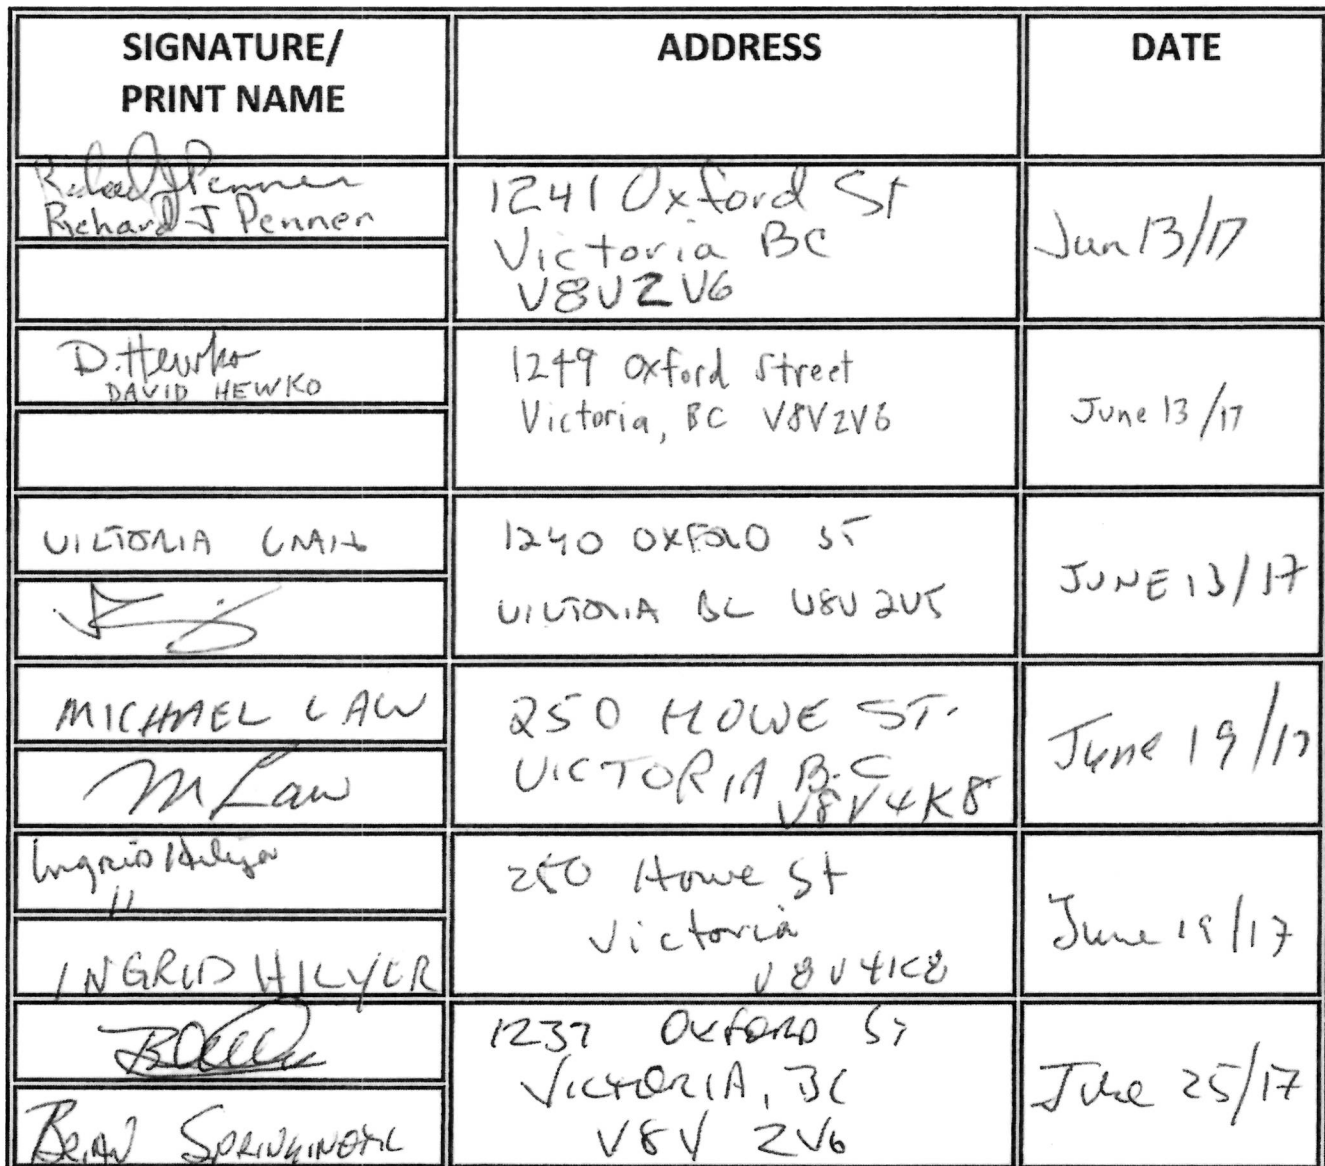 SIGNATURE/
PRINT NAME
ADDRESS
DATE
Richard J Penner
Richard J Penner
1241 Oxford St
Victoria BC
V8V2V6
Jun 13/17
D. Hewko
DAVID HEWKO
1249 Oxford Street
Victoria, BC V8V2V6
June 13/17
VICTORIA
1240 OXFORD ST
VICTORIA BC V8V 2V5
JUNE 13/17
MICHAEL LAW
M Law
250 HOWE ST.
VICTORIA B.C
V8V4K8
June 19/17
Ingrid Hilyer
"
INGRID HILYER
250 Howe St
Victoria
V8V4K8
June 19/17
BRIAN
1237 OXFORD ST
VICTORIA, BC
V8V 2V6
June 25/17